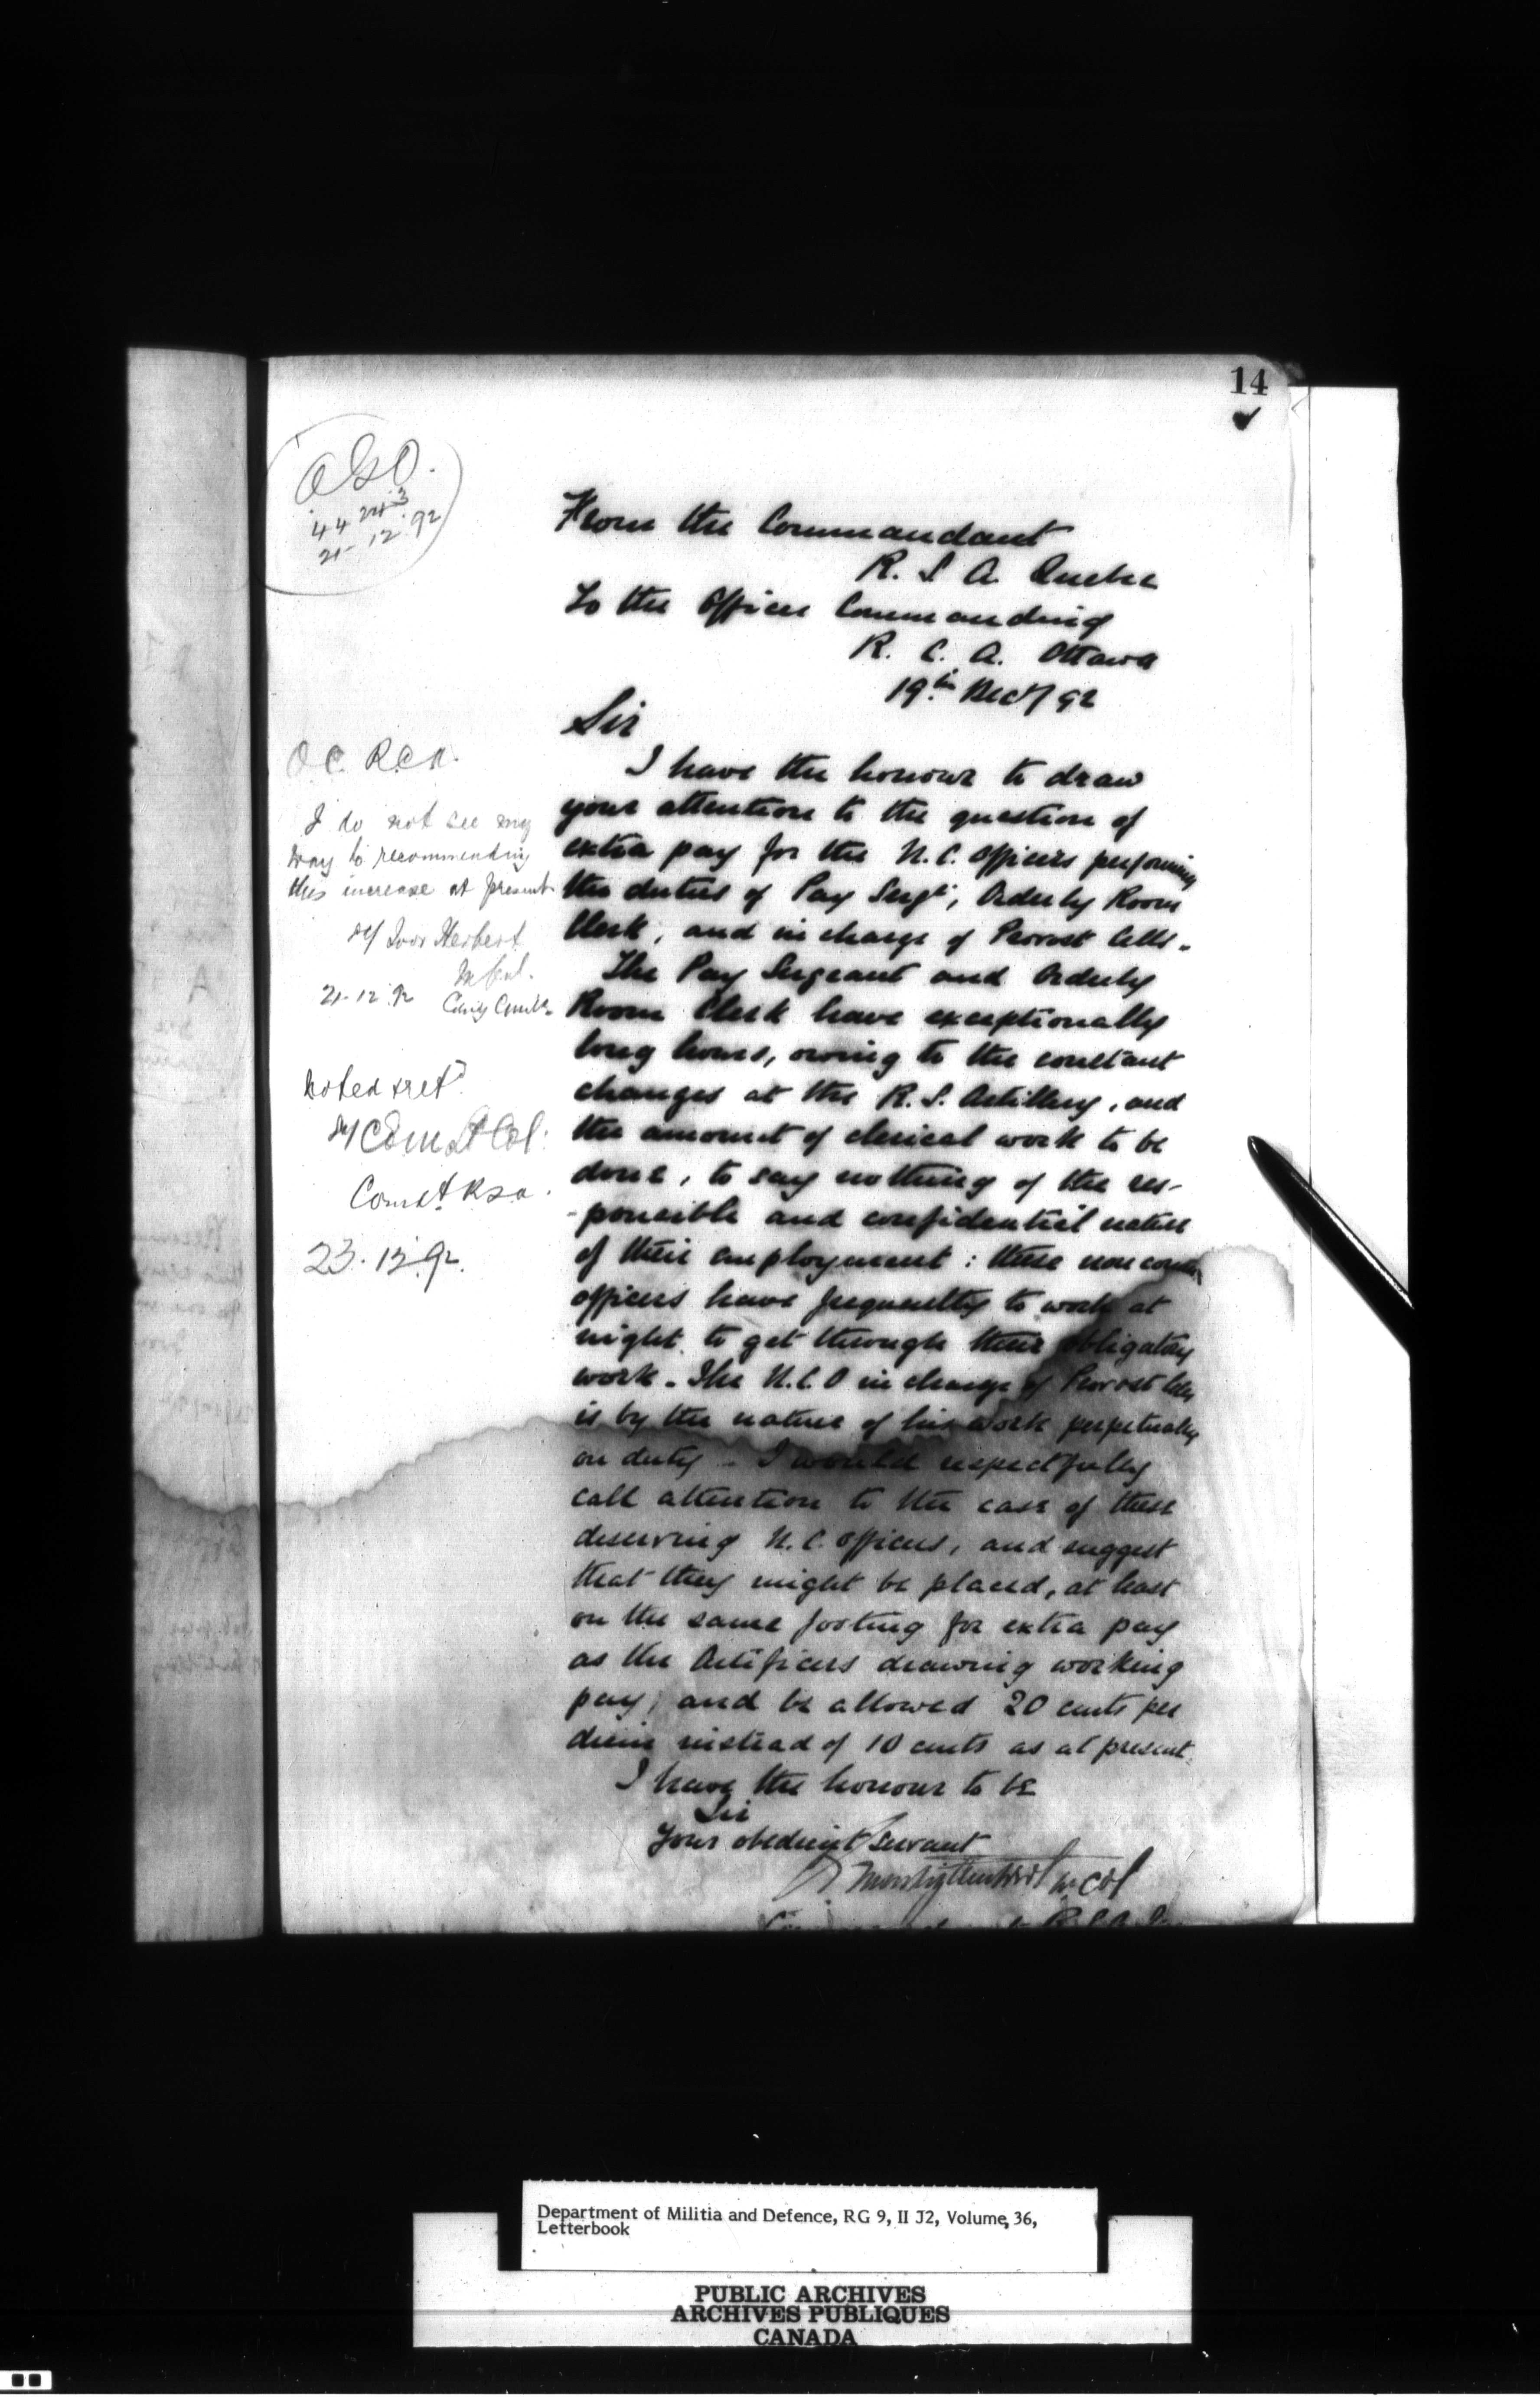 14
O.G.O.
44243
21-12-92
From the Commandant
R. S. A. Quebec
To the Officer Commanding
R. C. A. Ottawa
19th Decr/92
Sir
I have the honour to draw
your attention to the question of
extra pay for the N.C. Officers performing
the duties of Pay Sergt, Orderly Room
Clerk, and in charge of Provost Cells.
The Pay Sergeant and Orderly
Room Clerk have exceptionally
long hours, owing to the constant
changes at the R. S. Artillery, and
the amount of clerical work to be
done, to say nothing of the res-
-ponsible and confidential nature
of their employment: these non
officers have frequently to work at
night to get through their obligatory
work. The N.C.O in charge of Provost Cells
is by the nature of his work perpetually
on duty - I would respectfully
call attention to the case of these
deserving N.C. Officers, and suggest
that they might be placed, at least
on the same footing for extra pay
as the Artificers drawing working
pay, and be allowed 20 cents per
diem instead of 10 cents as at present.
I have the honour to be
Sir
Your obedient servant
Lt Col
O.C. R.C.A.
I do not see my
way to recommending
this increase at present
Sd/ Ivor Herbert
M Genl.
21-12-92
Noted & retd
Sd/ Lt Col:
Comdt RSA.
23.12.92.
Department of Militia and Defence, RG 9, II J2, Volume 36,
Letterbook
PUBLIC ARCHIVES
ARCHIVES PUBLIQUES
CANADA